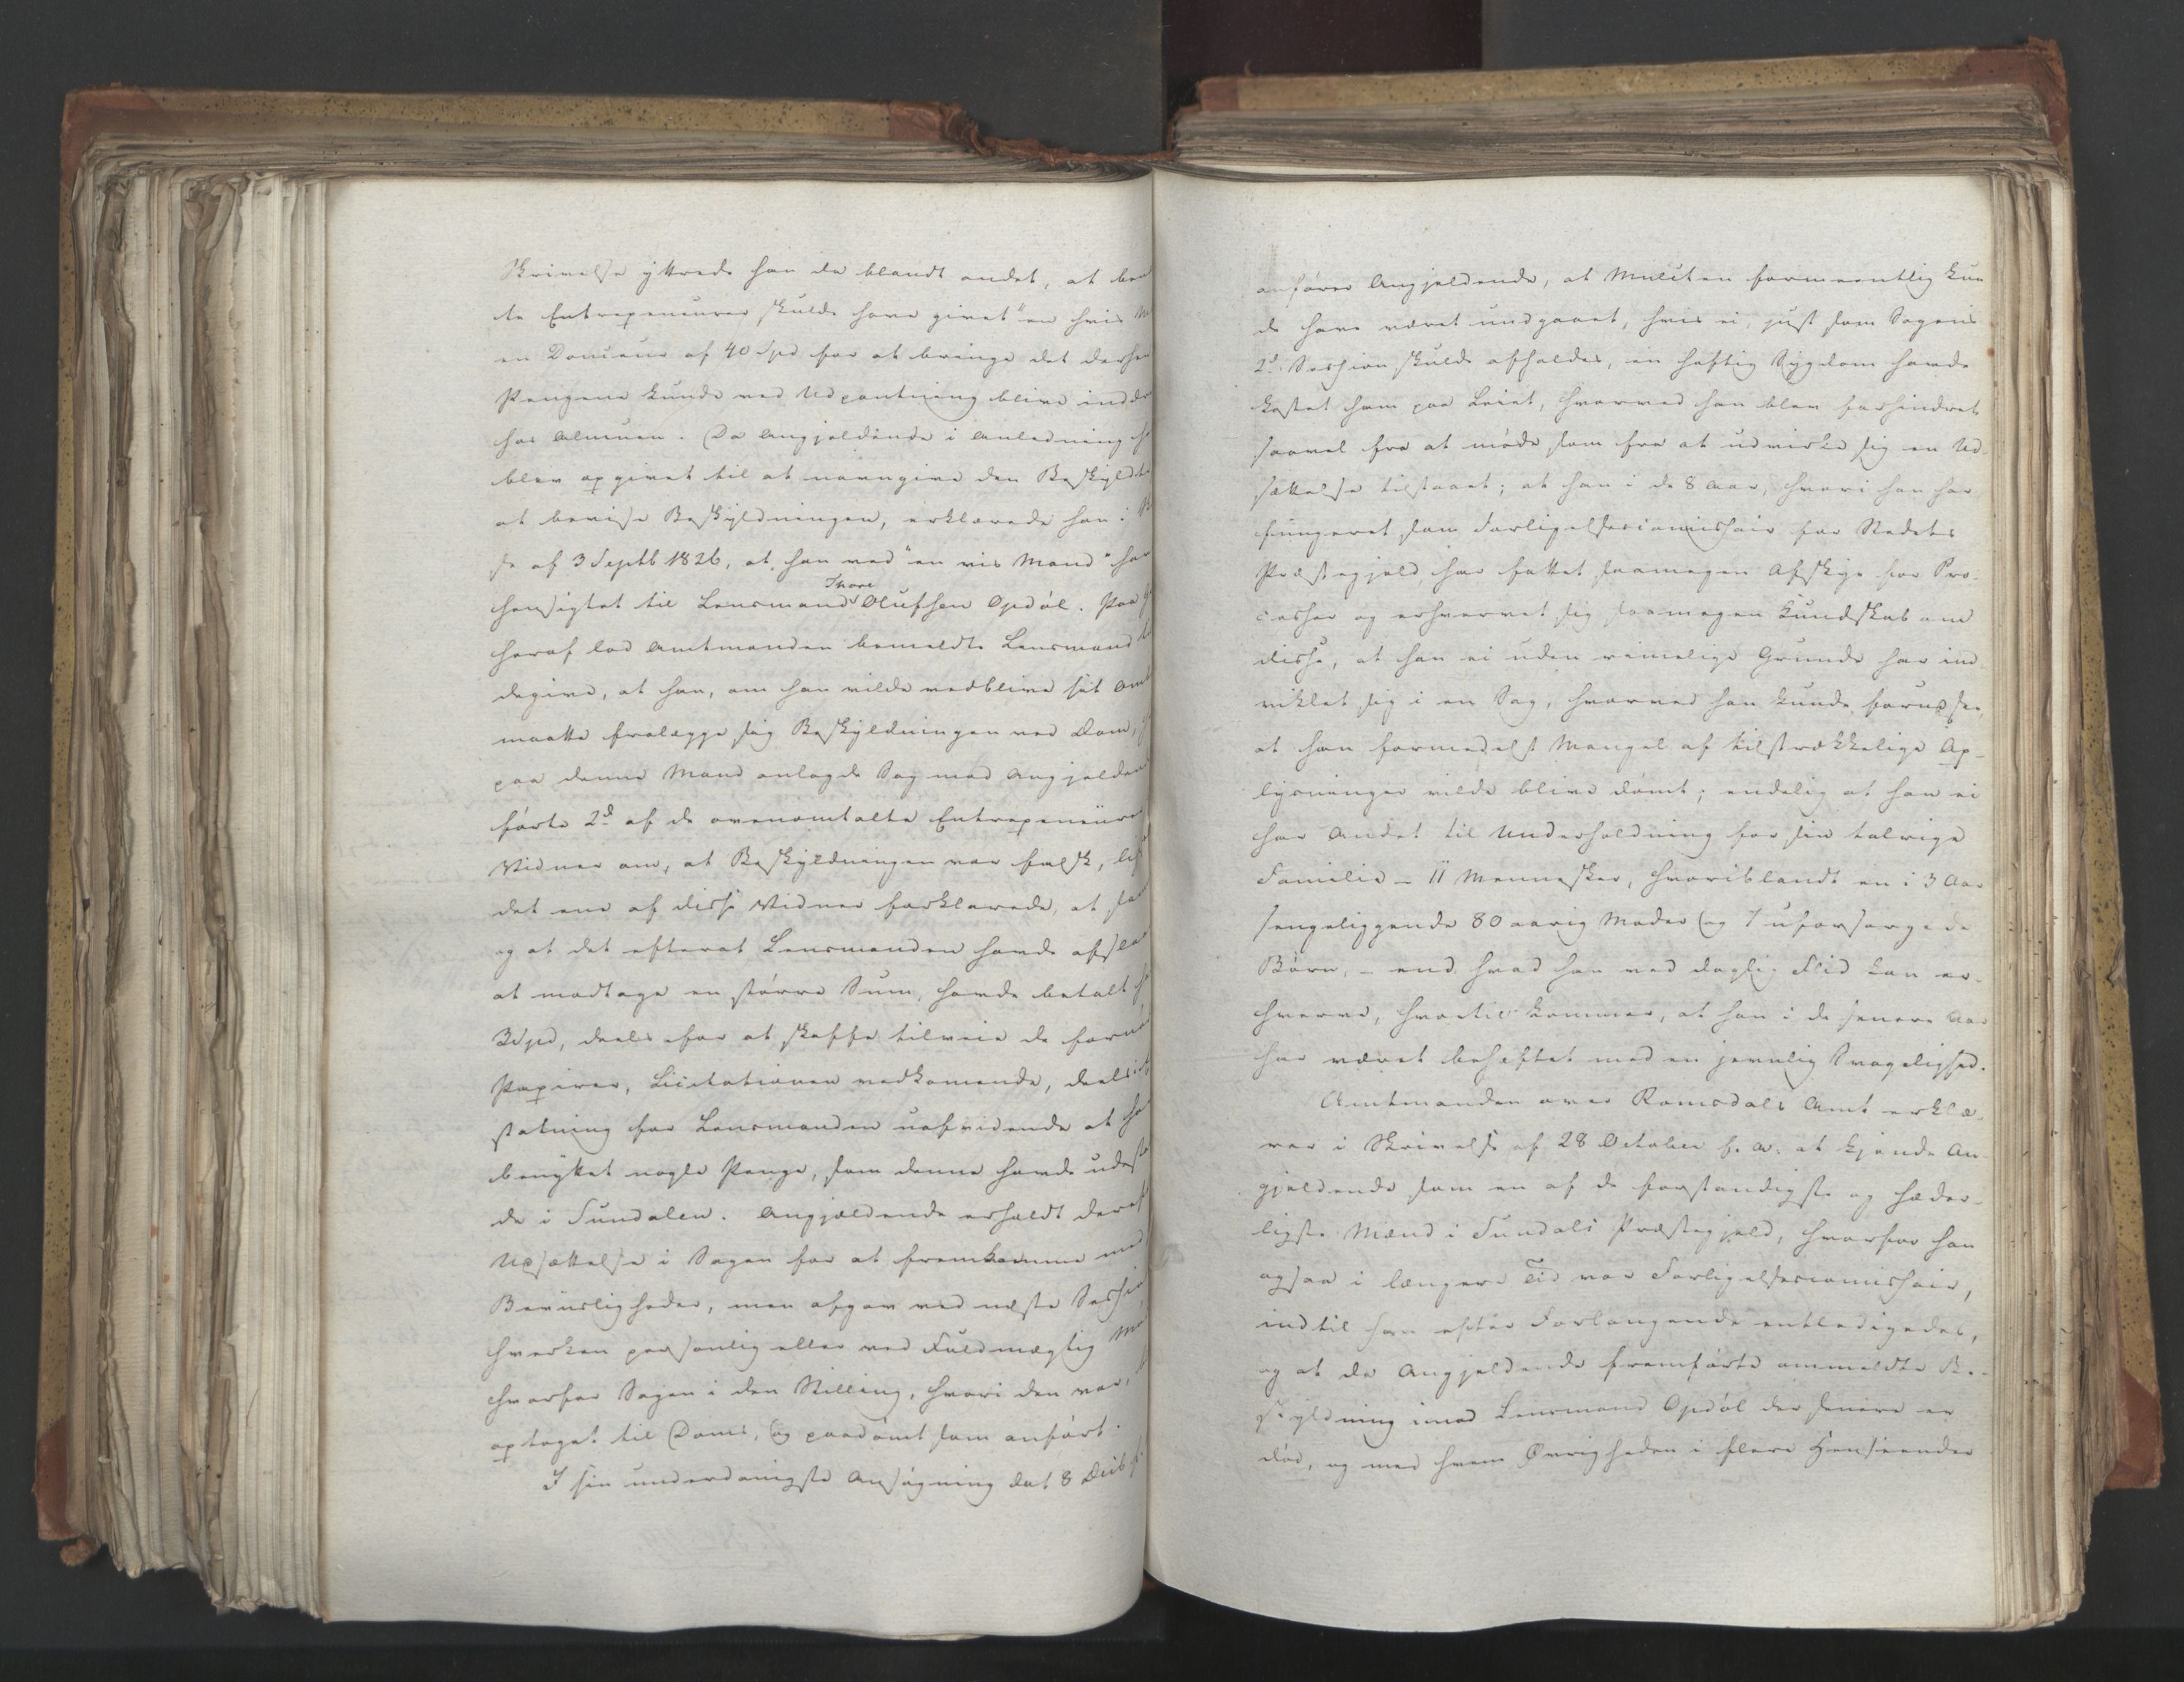 Skrivelse yttrede han da blandt andet, at
te Entrepeneurer skulde have givet "en hvis
en Douceur af 40 Spd for at bringe det
Pengene kunde ved Udpantning blive
hos Almuen. Da Angjeldende i Anledning
blev opgivet til at navngive den Beskyldte
at bevise Beskyldningen, erklærede han i
se af 3 Septb 1826, at han ved "en vis Mand" har
hensigtet til Lensmand Thore Olufsen Opdøl. Paa
heraf lod Amtmanden bemeldte Lensmand
degive, at han, om han vilde vedblive sit Amt
maatte fralægge sig Beskyldningen ved Dom,
paa denne Mand anlagde Sag mod Angjeldende
førte 2de af de ovenomtalte Entrepeneurer
Vidner om, at Beskyldningen var falsk,
det ene af disse Vidner forklarede, at
og at det efterat Lensmanden havde afslaaet
at modtage en større Sum, havde betalt
3 Spd, deels for at skaffe tilveie de
Papirer, Licitationen vedkomende, deels
statning for Lensmanden uafvidende at
benyttet nogle Penge, som denne havde
de i Sundalen. Angjældende erholdt
Udsættelse i Sagen for at fremkomme med
Beviisligheder, men afgav ved næste Session
hverken personlig eller ved Fuldmægtig
hvorfor Sagen i den Stilling, hvori den var,
optoget til Doms, og paadømt som anført.
I sin underdanigste Ansøgning dat 8 Decb
anfører Angjeldende, at Mulcten formeentlig kun
de have været undgaaet, hvis ei, just som Sagens
2d Session skulde afholdes, en heftig Sygdom havde
kastet ham paa Leiet, hvorved han blev forhindret
saavel fra at møde som fra at udvirke sig en Ud-
sættelse tilstaaet; at han i de 8 Aar, hvori han har
fungeret som Forligelsescomissair for Stedets
Præstegjeld, har fattet saamegen Afskye for Pro-
cesser og erhvervet sig saamegen Kundskab om
disse, at han ei uden rimelige Grunde har ind
viklet sig i en Sag, hvorved han kunde forudsee,
at han formedelst Mangel af tilstrækkelige Op-
lysninger vilde blive dømt; endelig at han ei
har Andet til Underholdning for sin talrige
Familie - 11 Mennesker, hvoriblandt en i 3 Aar
sengeliggende 80 aarig Moder og 7 uforsørgede
Børn, - end hvad han ved daglig Flid kan er-
hverve, hvortil kommer, at han i de senere Aar
har været behæftet med en jevnlig Svagelighed.
Amtmanden over Romsdals Amt erklæ-
rer i Skrivelse af 28 October f. A. at kjende An-
gjeldende som en af de forstandigste og hæder-
ligste Mænd i Sundals Præstegjeld, hvorfor han
ogsaa i længere Tid var Forligelsescomissair,
indtil han efter Forlangende entledigedes,
og at da Angjeldende fremførte ommeldte Be-
skyldning imod Lensmand Opdøl der senere er
død, og med hvem Øvrigheden i flere Henseender